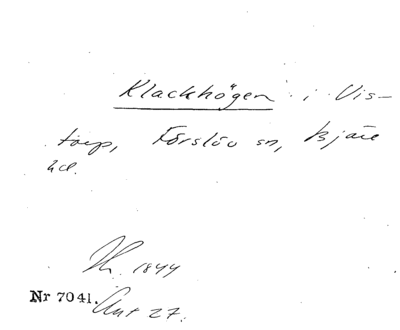 Klackhögen i Vis-
torp, Förslöv sn, Bjäre
hd.
1844
Nr 7041. Ant 27.